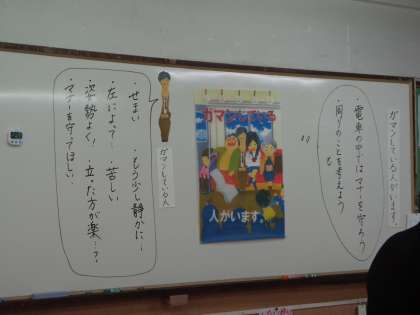 ガマンしている人がいます。
・電車の中ではマナーを守ろう
・周りのことを考えよう
ガマンしている
人がいます。
ガマンしている人
・せまい
・もう少し静かに…
・左によって…
・苦しい
・姿勢よく!
・立った方が楽…?
・マナーを守ってほしい…